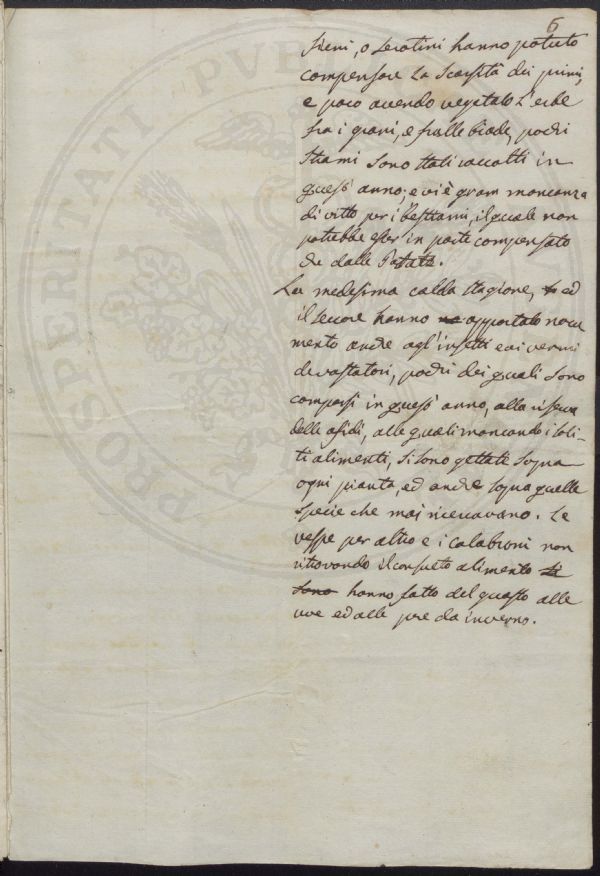 6
fieni, o seratini hanno potuto
compensare la Scarsità dei primi,
e poco avendo vegetato l'erbe
fra i grani, e fralle biade, pochi
strami sono stati raccolti in
quest' anno; e vi è gram mancanza
di vitto per i bestiami, il quale non
potrebbe esser in parte compensato
che dalle Patate.
La medesima calda stagione, ed
il seccore hanno apportato nocu
mento anche agl'insetti e ai vermi
devastatori, pochi dei quali sono
comparsi in quest' anno, alla riserva
delle afidi, alle quali mancando i soli-
ti alimenti, si sono gettate sopra
ogni pianta, ed anche sopra quelle
specie che mai ricercavano. Le
vespe per altro e i calabroni non
ritrovando il consueto alimento
sono hanno fatto del guasto alle
uve ed alle pere da inverno.
PROSPERITATI PUBL